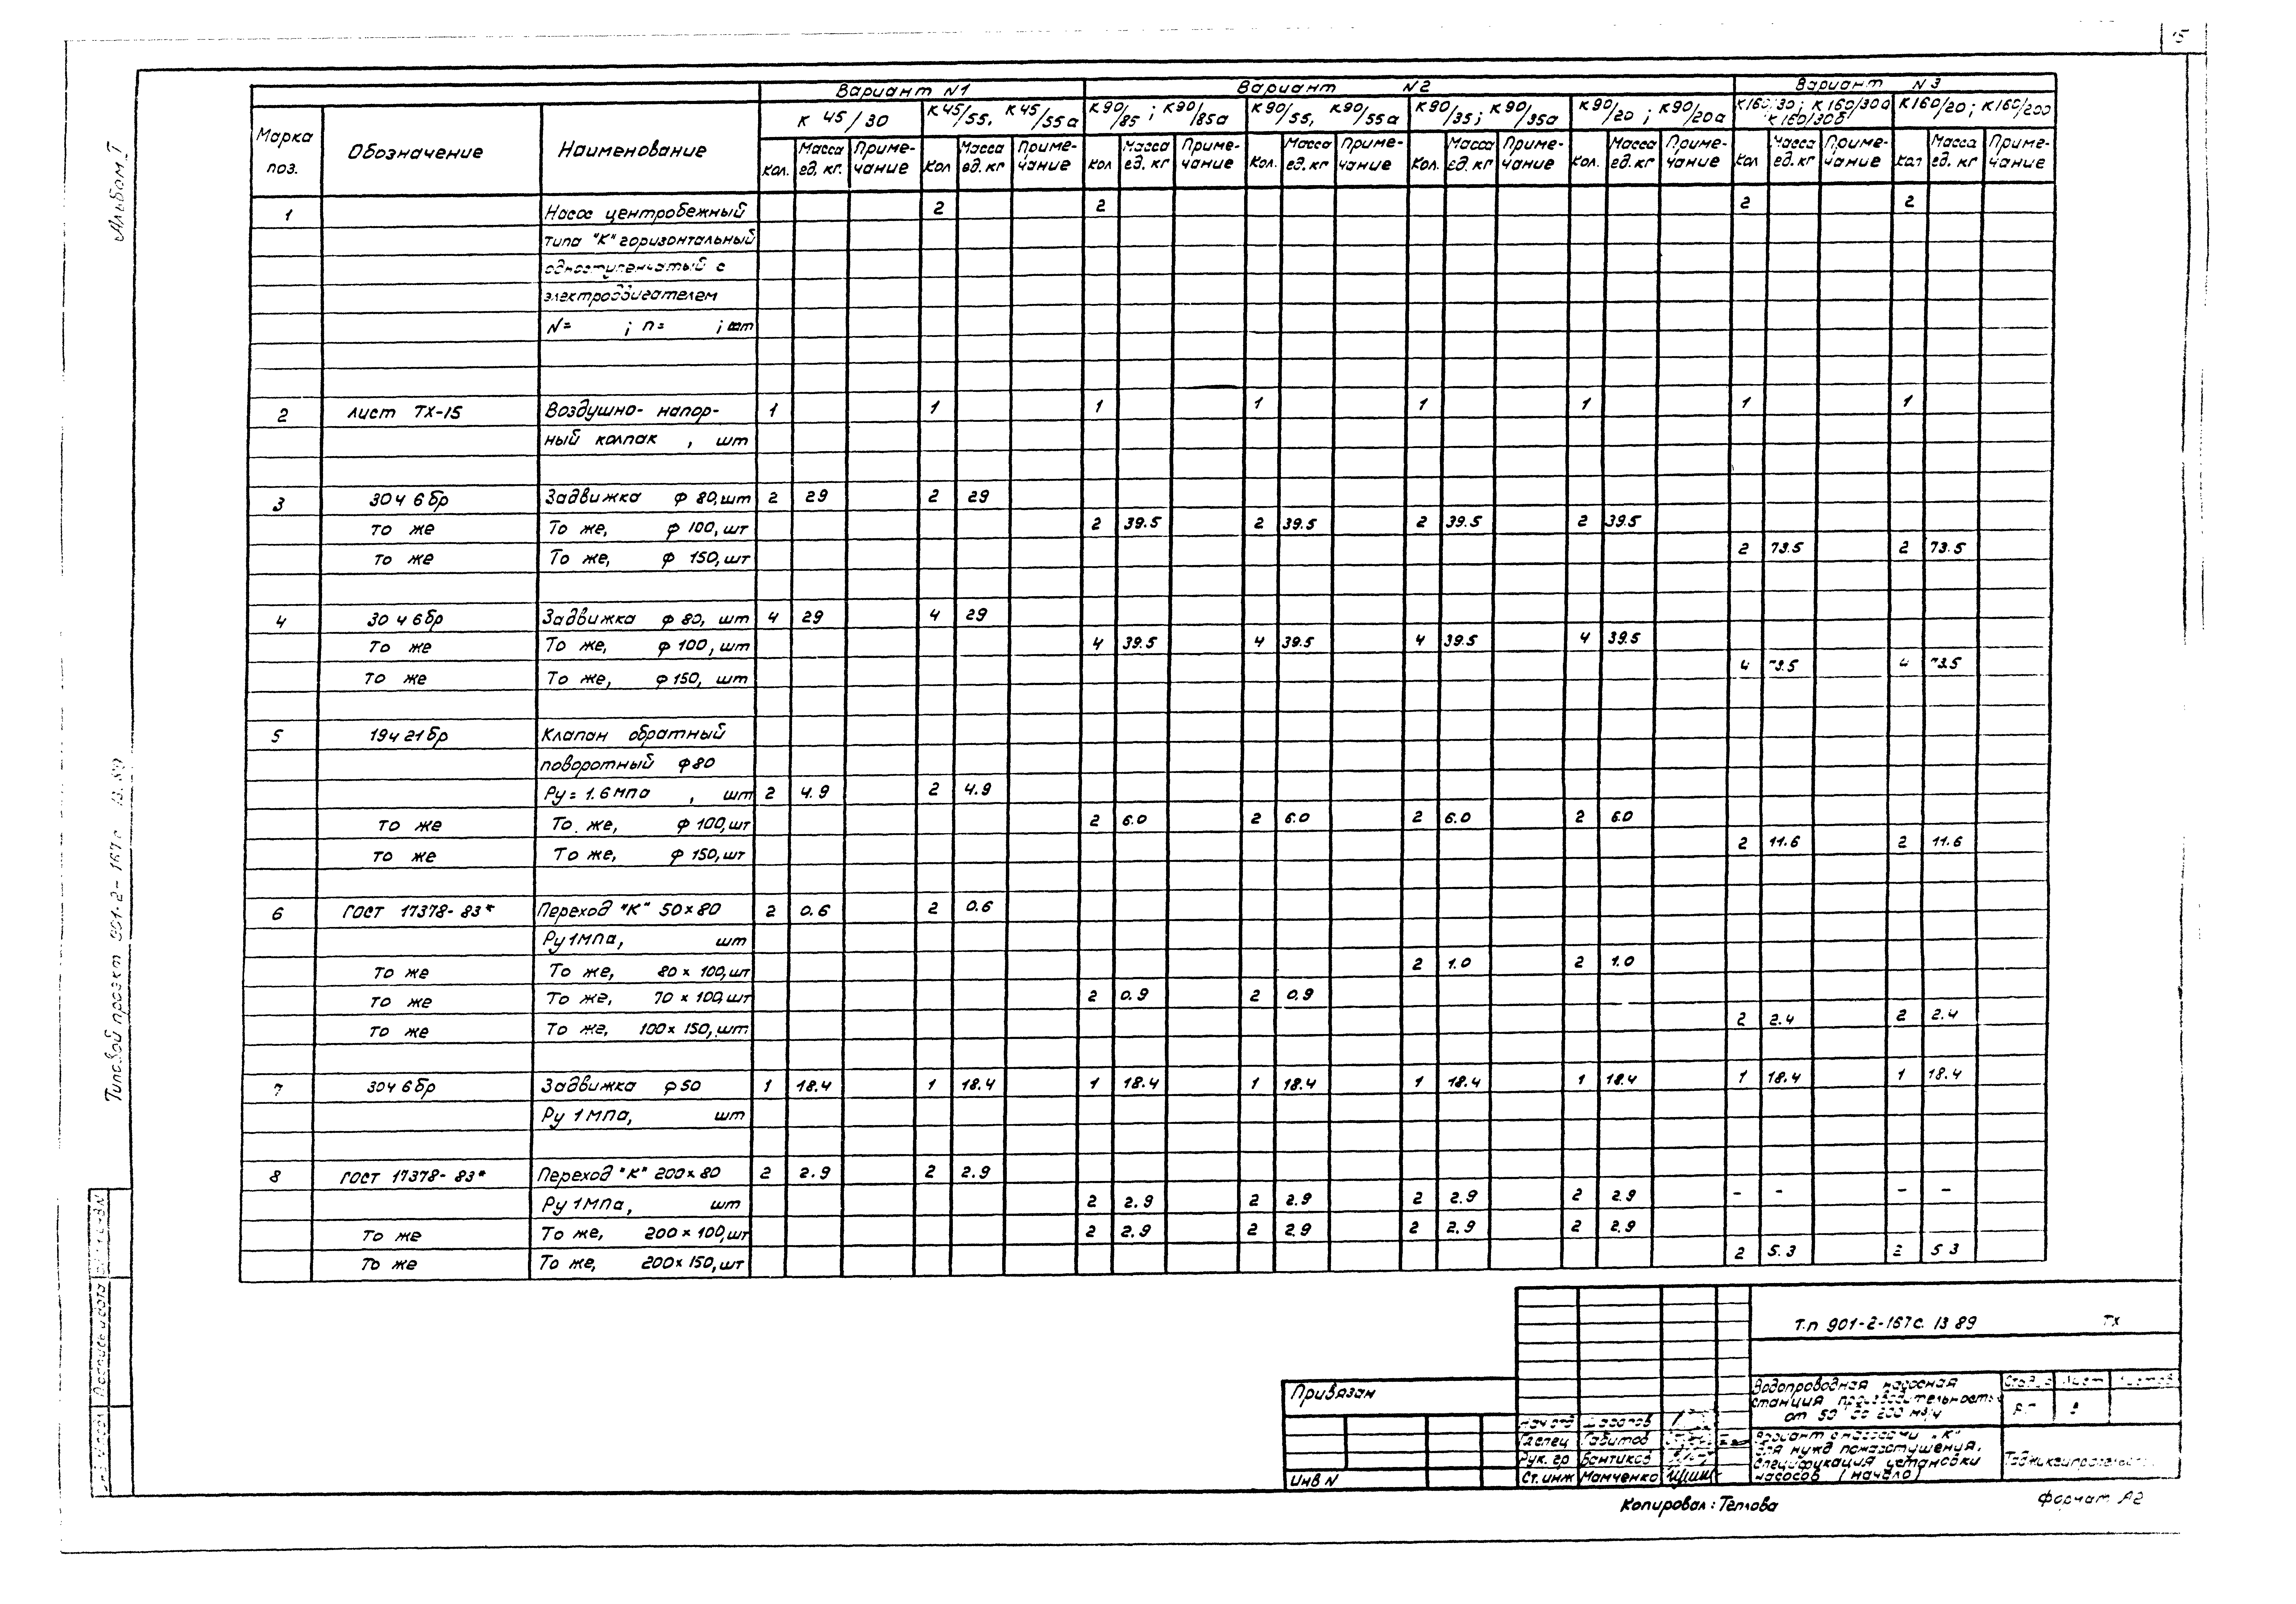 15
Альбом I
Типовой проект 901-2-167с. 13.89
Вариант N1 Вариант N2 Вариант N3
Марка поз. Обозначение Наименование К 45/30 К45/55, К45/55а К90/85; К90/85а К90/55, К90/55а К90/35; К90/35а К90/20; К90/20а К160/30; К160/30а К160/30б К160/20; К160/20а
Кол. Масса ед. кг. Приме-чание Кол Масса ед. кг Приме-чание Кол Масса ед. кг Приме-чание Кол. Масса ед. кг Приме-чание Кол. Масса ед. кг Приме-чание Кол. Масса ед. кг Приме-чание Кол Масса ед. кг Приме-чание Кол Масса ед. кг Приме-чание
1 Насос центробежный 2 2 2 2
типа "К" горизонтальный
одноступенчатый с
электродвигателем
N= ; n= ; шт
2 Лист ТХ-15 Воздушно- напор- 1 1 1 1 1 1 1 1
ный колпак , шт
3 30ч 6бр Задвижка ф 80, шт 2 29 2 29
То же То же, ф 100, шт 2 39.5 2 39.5 2 39.5 2 39.5
То же То же, ф 150, шт 2 73.5 2 73.5
4 30 ч 6бр Задвижка ф 80, шт 4 29 4 29
То же То же, ф 100, шт 4 39.5 4 39.5 4 39.5 4 39.5
То же То же, ф 150, шт 4 73.5 4 73.5
5 19ч 21бр Клапан обратный
поворотный ф 80
Ру = 1.6 мпа , шт 2 4.9 2 4.9
То же То же, ф 100, шт 2 6.0 2 6.0 2 6.0 2 6.0
То же То же, ф 150, шт 2 11.6 2 11.6
6 ГОСТ 17378-83* Переход "К" 50×80 2 0.6 2 0.6
Ру 1 мпа, шт
То же То же, 80 × 100, шт 2 1.0 2 1.0
То же То же, 70 × 100, шт 2 0.9 2 0.9
То же То же, 100× 150, шт 2 2.4 2 2.4
7 30ч 6бр Задвижка ф 50 1 18.4 1 18.4 1 18.4 1 18.4 1 18.4 1 18.4 1 18.4 1 18.4
Ру 1 мпа, шт
8 ГОСТ 17378-83* Переход "К" 200×80 2 2.9 2 2.9
Ру 1 мпа, шт 2 2.9 2 2.9 2 2.9 2 2.9 - - - -
То же То же, 200 × 100, шт 2 2.9 2 2.9 2 2.9 2 2.9
То же То же, 200× 150, шт 2 5.3 2 5 3
Т.п 901-2-167с. 13 89 ТХ
Привязан
Инв N
Нач отд
Гл спец Габитов
Рук. гр Бонтиков
Ст. инж Манченко
Водопроводная насосная
станция производительностью
от 50 до 200 м3/ч
Стадия Лист Листов
Вариант с насосами "К"
для нужд пожаротушения.
Спецификация установки
насосов (начало)
Копировал: Теплова
Формат А2